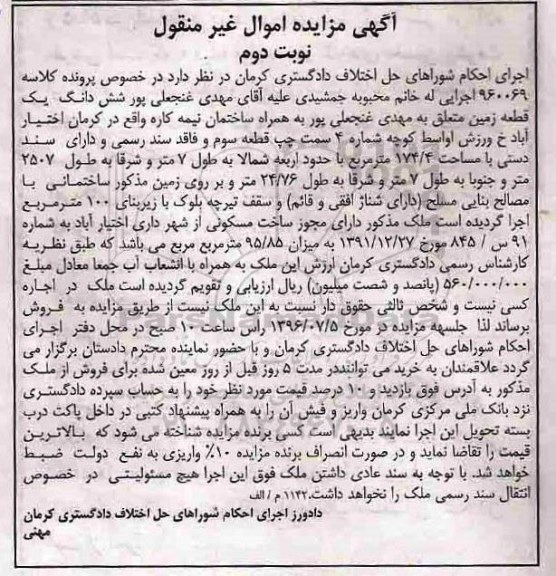 آگهی مزایده اموال غیر منقول
نوبت دوم
اجرای احکام شوراهای حل اختلاف دادگستری کرمان در نظر دارد در خصوص پرونده کلاسه
۹۶۰۰۶۹ اجرایی له خانم محبوبه جمشیدی علیه آقای مهدی غنجعلی پور شش دانگ یک
قطعه زمین متعلق به مهدی غنجعلی پور به همراه ساختمان نیمه کاره واقع در کرمان اختیار
آباد خ ورزش اواسط کوچه شماره ۴ سمت چپ قطعه سوم و فاقد سند رسمی و دارای سند
دستی با مساحت ۱۷۴/۴ مترمربع با حدود اربعه شمالا به طول ۷ متر و شرقا به طول ۲۵۰۷
متر و جنوبا به طول ۷ متر و شرقا به طول ۲۴/۷۶ متر و بر روی زمین مذکور ساختمانی با
مصالح بنایی مسلح (دارای شناژ افقی و قائم) و سقف تیرچه بلوک با زیربنای ۱۰۰ مترمربع
اجرا گردیده است ملک مذکور دارای مجوز ساخت مسکونی از شهر داری اختیار آباد به شماره
۹۱ س / ۸۴۵ مورخ ۱۳۹۱/۱۲/۲۷ به میزان ۹۵/۸۵ مترمربع مربع می باشد که طبق نظریه
کارشناس رسمی دادگستری کرمان ارزش این ملک به همراه با انشعاب آب جمعا معادل مبلغ
۵۶۰/۰۰۰/۰۰۰ (پانصد و شصت میلیون) ریال ارزیابی و تقویم گردیده است ملک در اجاره
کسی نیست و شخص ثالثی حقوق دار نسبت به این ملک نیست از طریق مزایده به فروش
برساند لذا جلسه مزایده در مورخ ۱۳۹۶/۰۷/۵ رأس ساعت ۱۰ صبح در محل دفتر اجرای
احکام شوراهای حل اختلاف دادگستری کرمان و با حضور نماینده محترم دادستان برگزار می
گردد علاقمندان به خرید می توانند در مدت ۵ روز قبل از روز معین شده برای فروش از ملک
مذکور به آدرس فوق بازدید و ۱۰ درصد قیمت مورد نظر خود را به حساب سپرده دادگستری
نزد بانک ملی مرکزی کرمان واریز و فیش آن را به همراه پیشنهاد کتبی در داخل پاکت درب
بسته تحویل این اجرا نمایند بدیهی است کسی برنده مزایده شناخته می شود که بالاترین
قیمت را تقاضا نماید و در صورت انصراف برنده مزایده ۱۰٪ واریزی به نفع دولت ضبط
خواهد شد. با توجه به سند عادی داشتن ملک فوق این اجرا هیچ مسئولیتی در خصوص
انتقال سند رسمی ملک را نخواهد داشت. ۱۱۴۲ م / الف
دادورز اجرای احکام شوراهای حل اختلاف دادگستری کرمان
مهنی